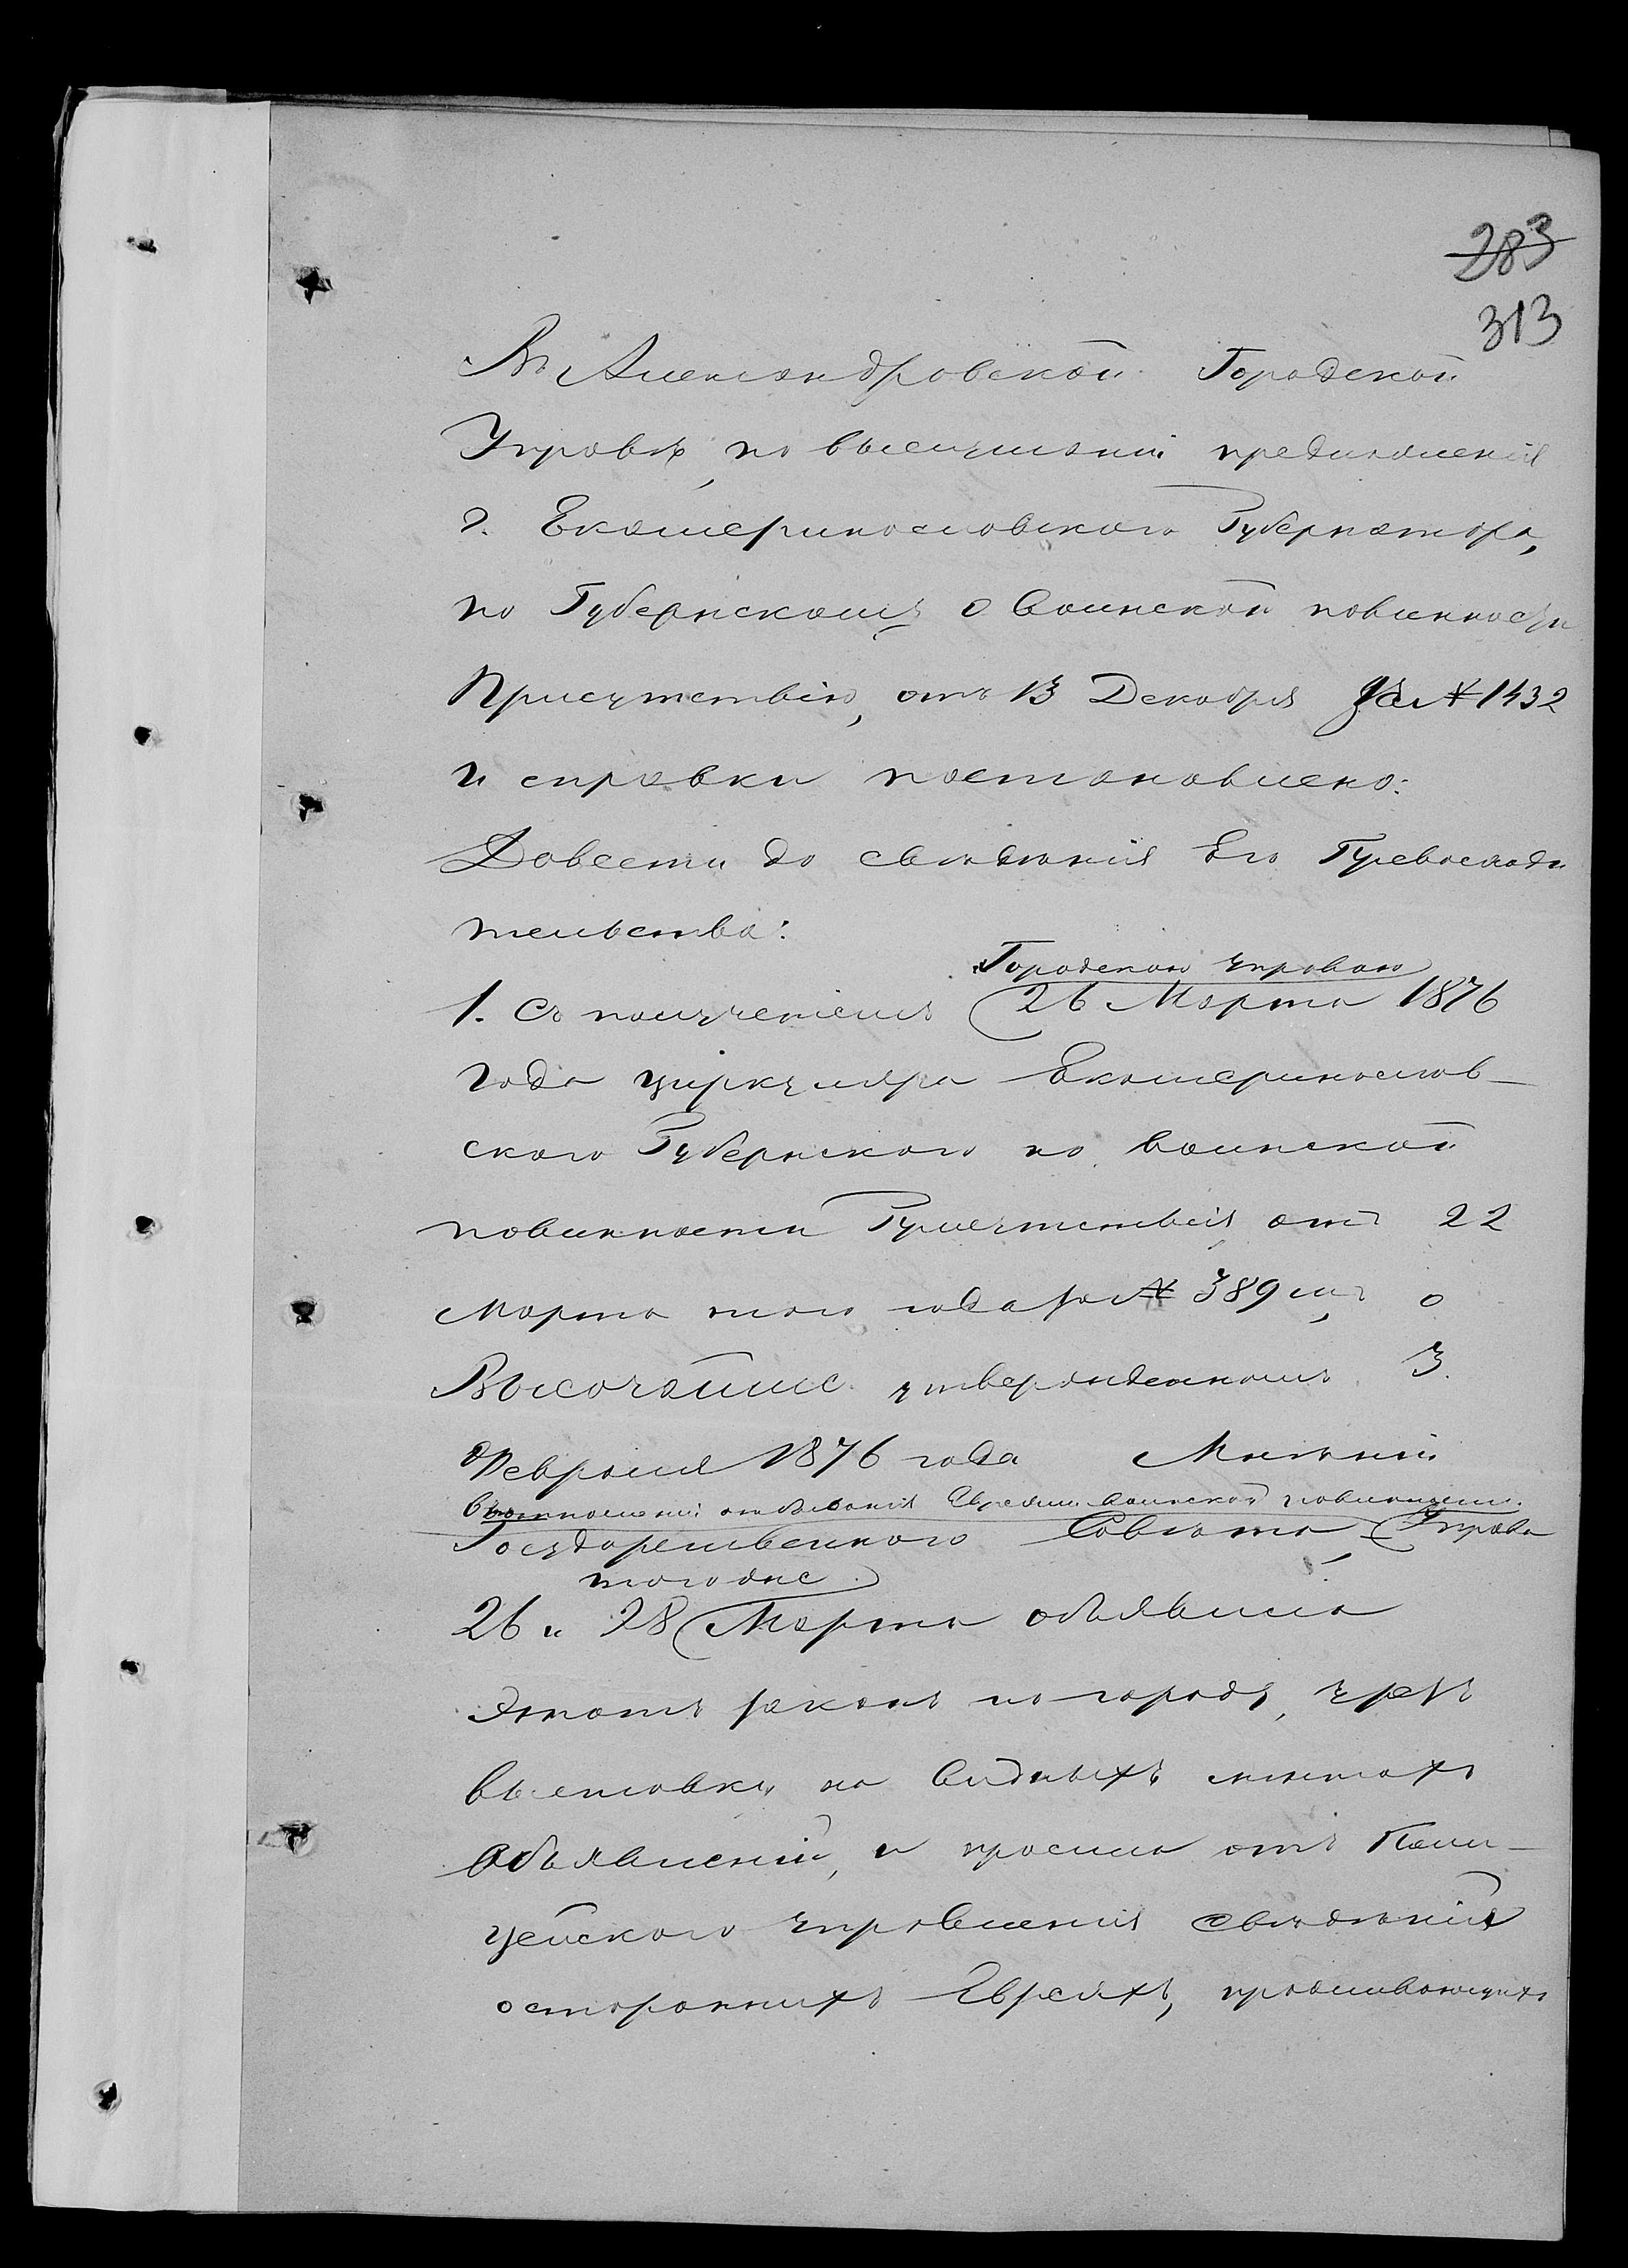 283
313
Въ Александровской Городской
Управѣ, по выслушаніи предложенія
г. Екатеринославскаго Губернатора,
по Губернскому о воинской повинности
Присутствію, отъ 13 Декабря за № 1432
и справки постановлено:
Довести до свѣдѣнія Его Превосходи
тельства:
Городскою управою
1. Съ полученіемъ 26 Марта 1876
года циркуляра Екатеринослав-
скаго Губернскаго по воинской
повинности Присутствія, отъ 22
Марта того года за № 389 мъ, о
Высочайше утвержденномъ 3.
Февраля 1876 года Мнѣніи
въ отношеніи отбыванія Евреями воинской повинности.
Государственнаго Совѣта, Управа
того же
26 и 28 Марта объявила
этотъ законъ по городу, чрезъ
выставку на видныхъ мѣстахъ
объявленій, и просила отъ Поли-
цейскаго управленія свѣдѣнія
о стороннихъ Евреяхъ, проживающихъ